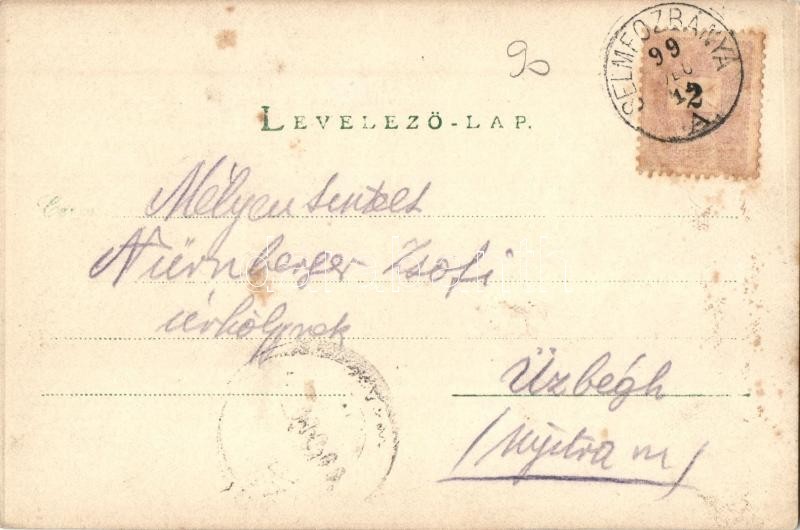 90
SELMECZBÁNYA
99
DEC
12
A
2
LEVELEZŐ-LAP.
Mélyen tisztelt
Nürnberger Zsofi
úrhölgynek
Üzbégh
/Nyitra m/